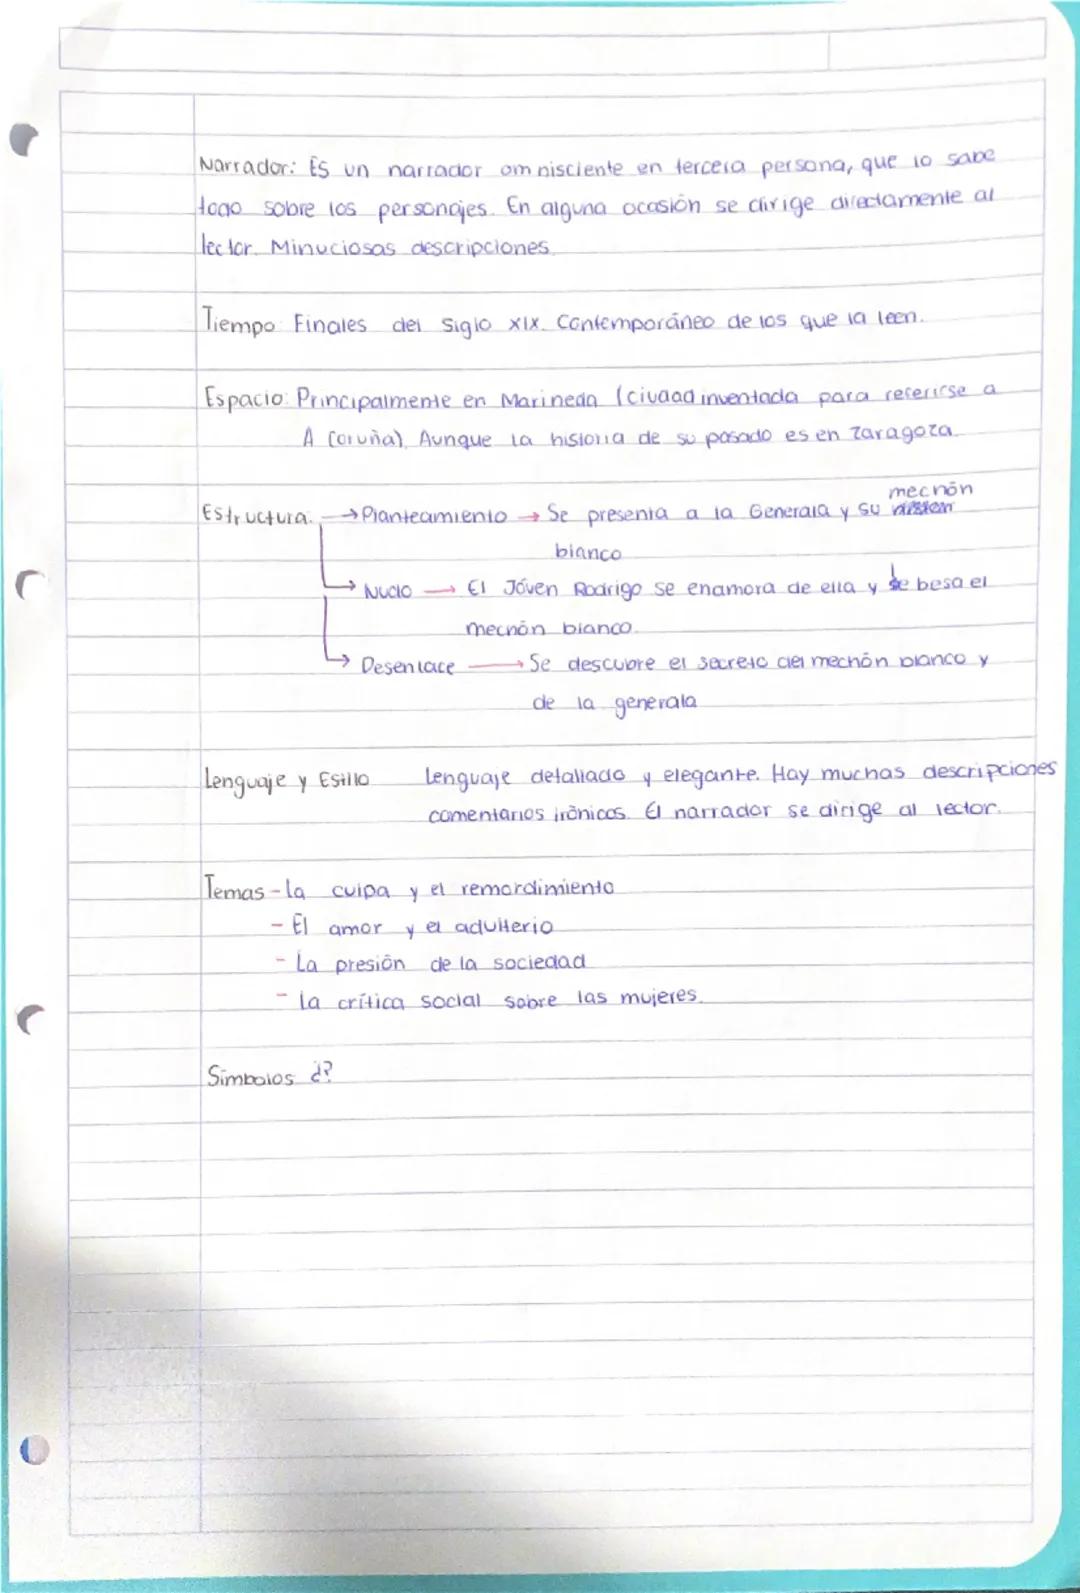 Narrador: Es un narrador omnisciente en tercera persona, que lo sabe
todo sobre los personajes. En alguna ocasión se dirige directamente al
lector. Minuciosas descripciones.
Tiempo: Finales del siglo XIX. Contemporáneo de los que la leen.
Espacio: Principalmente en Marineda (ciudad inventada para referirse a
A Coruña). Aunque la historia de su pasado es en Zaragoza.
Estructura: → Planteamiento → Se presenta a la Generala y su mechón
blanco
→ Nudo → El Jóven Rodrigo se enamora de ella y le besa el
mechón blanco.
→ Desenlace → Se descubre el secreto del mechón blanco y
de la generala
Lenguaje y Estilo Lenguaje detallado y elegante. Hay muchas descripciones
comentarios irónicos. El narrador se dirige al lector.
Temas - La culpa y el remordimiento
- El amor y el adulterio
- La presión de la sociedad
- La crítica social sobre las mujeres.
Símbolos ¿?